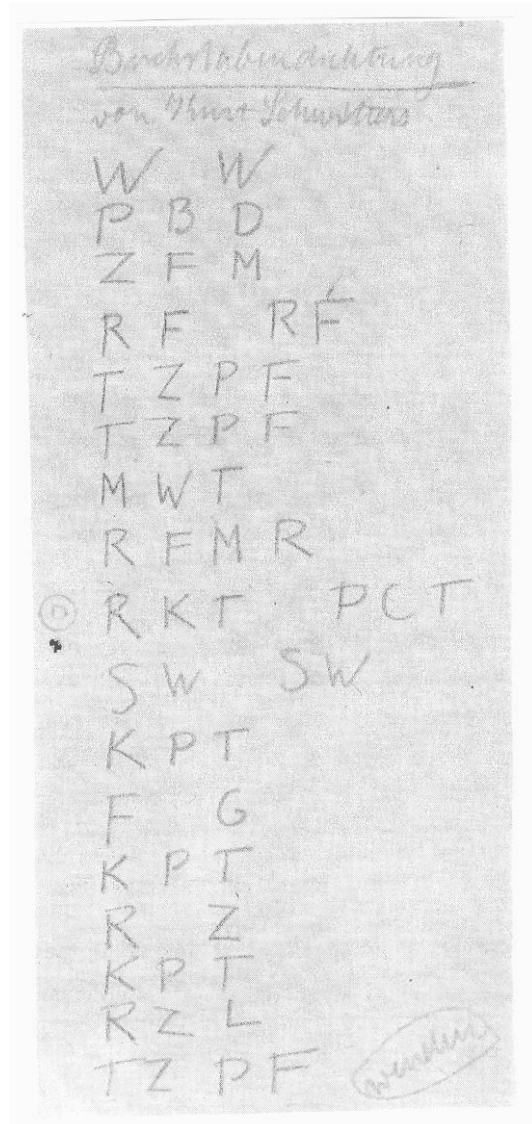 Buchstabendichtung
von Kurt Schwitters
W W
P B D
Z F M
R F R F
T Z P F
T Z P F
M W T
R F M R
R K T P C T
S W S W
K P T
F G
K P T
R Z
K P T
R Z L
T Z P F
wenden